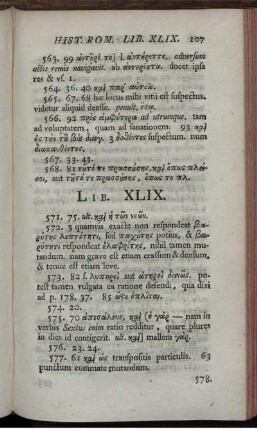 HIST. ROM. LIB. XLIX. 107
563. 99 ἀντῄρέ τε] l. ἀντήρεττε, adversum
actis remis navigavit. ab ἀντερέττω. docet ipsa
res & vs. 1.
564. 36. 40 καὶ παρ' αὐτῶν.
565. 67. 68 hic locus mihi vitii est suspectus.
videtur aliquid deesse.
566. 92 πρὸς ἀμφότερα ad utrumque, tam
ad voluptatem, quam ad sanationem. 93 καὶ
suspectum. num
διακανθέντες.
567. 33. 43.
568. 81 τοῦτό τε πράσσῃσθε, καὶ ὅπως
aut τοῦτό τε πράσσῃσθε, ὅπως τε πλ.
LIB. XLIX.
571. 75. ult. καὶ ἡ τῶν νεῶν.
572. 3 quamvis exacte non respondeat βα-
ρύτης λεπτότητι, sed παχύτης potius, & βα-
ρύτητι respondeat ἐλαφρότης, nihil tamen mu-
tandum. nam grave est etiam crassum & densum,
& tenue est etiam leve.
573. 82 f. λυπηροὶ aut δεινῶς. po-
test tamen vulgata ea ratione defendi, qua dixi
ad p. 178. 37. 85 ὥστε ὁπλῖται.
574. 20.
575. 70 ἀπεσάλευε, καὶ (ὁ γὰρ — nam in
verbis Sextus enim ratio redditur, quare plures
in dies id contigerit. ult. καὶ] mallem γάρ.
576. 23. 24.
577. 61 καὶ ὡς transpositis particulis. 63
punctum commate mutandum.
578.